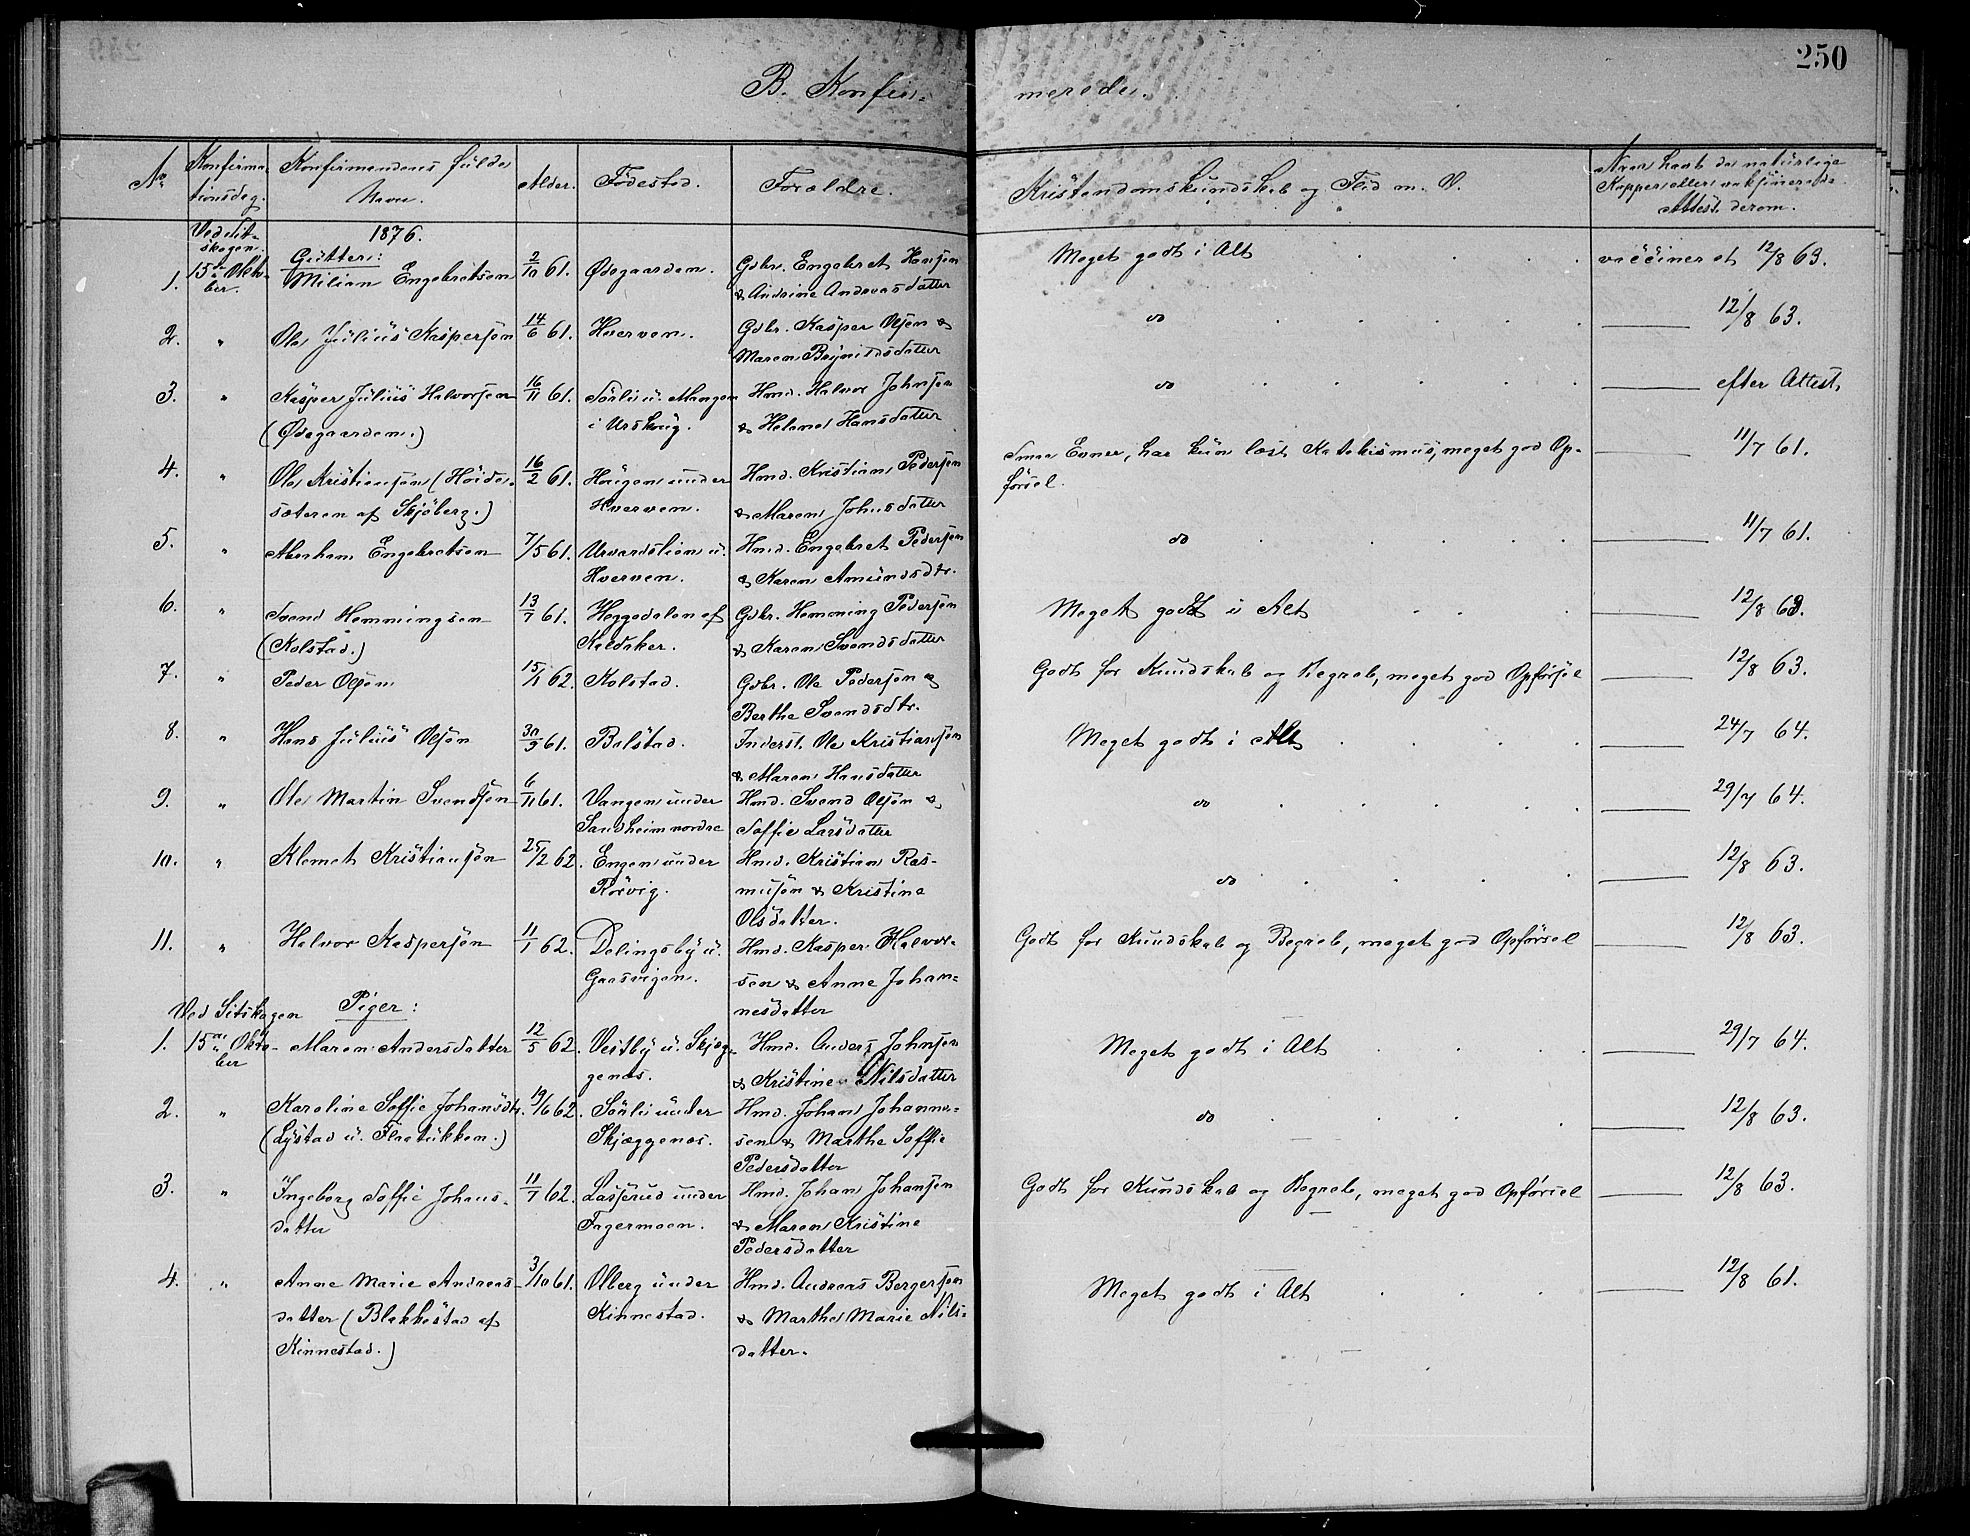 250
B. Konfir-
merede.
No
Konfirma-
tionsdag.
Konfirmandens fulde
Navn.
Alder.
Fødested.
Forældre.
Kristendomskundskab og Flid m. V.
Naar havt de naturlige
Kopper eller vaksinerede
Attest derom.
Ved Sit-
skogen.
1876.
Gutter:
1. 15de Okto- Milian Engebretsen 2/10 61. Ødegaarden. Gdbr. Engebret Hansen Meget godt i Alt vaccineret 12/8 63.
ber. & Andrine Andreasdatter
2. " Ole Julius Kaspersen 14/6 61. Hverven. Gdbr. Kasper Olsen & do — 12/8 63.
Maren Brynildsdatter
3. " Kasper Julius Halvorsen 16/11 61. Sørli u. Mangen Hmd. Halvor Johnsen do — efter Attest,
(Ødegaarden.) i Urskoug. & Helene Hansdatter
4. " Ole Kristiansen (Høide- 16/2 61. Haugen under Hmd. Kristian Pedersen Smaa Evner, har kun læst Katekismus, meget god Op- — 11/7 61.
sæteren af Skjøberg.) Hverven. & Maren Johnsdatter førsel.
5. " Abraham Engebretsen 7/5 61. Urvardslien u. Hmd. Engebret Pedersen do — 11/7 61.
Hverven. & Karen Amundsdtr.
6. " Svend Hemmingsen 13/7 61. Heggedalen af Gdbr. Hemming Pedersen Meget godt i Alt — 12/8 63.
(Kolstad.) Kaldaker. & Karen Svendsdatter
7. " Peder Olsen 15/1 62. Kolstad. Gdbr. Ole Pedersen & Godt for Kundskab og Begreb, meget god Opførsel — 12/8 63.
Berthe Svendsdtr.
8. " Hans Julius Olsen 30/9 61. Bolstad. Inderst. Ole Kristiansen Meget godt i Alt — 24/7 64.
& Maren Hansdatter
9. " Ole Martin Svendsen 6/11 61. Vangen under Hmd. Svend Olsen & do — 29/7 64.
Sandheim nordre Soffie Larsdatter
10. " Klemet Kristiansen 25/2 62. Engen under Hmd. Kristian Ras- do — 12/8 63.
Rørvig. musen & Kristine
Olsdatter.
11. " Halvor Kaspersen 11/1 62. Dølingsby u. Hmd. Kasper Halvor- Godt for Kundskab og Begreb, meget god Opførsel — 12/8 63.
Gaasvigen. sen & Anne Johan-
nesdatter
Ved Sitskogen Piger:
1. 15de Okto- Maren Andersdatter 12/5 62. Vestby u. Skjæg- Hmd. Anders Johnsen Meget godt i Alt — 29/7 64.
ber genæs. & Kristine Nilsdatter
2. " Karoline Soffie Johansdtr. 19/6 62. Sørli under Hmd. Johan Johanne- do — 12/8 63.
(Lystad u. Flaatukken.) Skjæggenæs. sen & Marthe Soffie
Pedersdatter
3. " Ingeborg Soffie Johans- 11/7 62. Lasserud under Hmd. Johan Johansen Godt for Kundskab og Begreb, meget god Opførsel — 12/8 63.
datter Fagermoen. & Maren Kristine
Pedersdatter
4. " Anne Marie Andreas- 3/10 61. Olberg under Hmd. Andreas Bergersen Meget godt i Alt — 12/8 61.
datter (Blakkestad af Kinnestad. & Marthe Marie Nils-
Kinnestad.) datter.